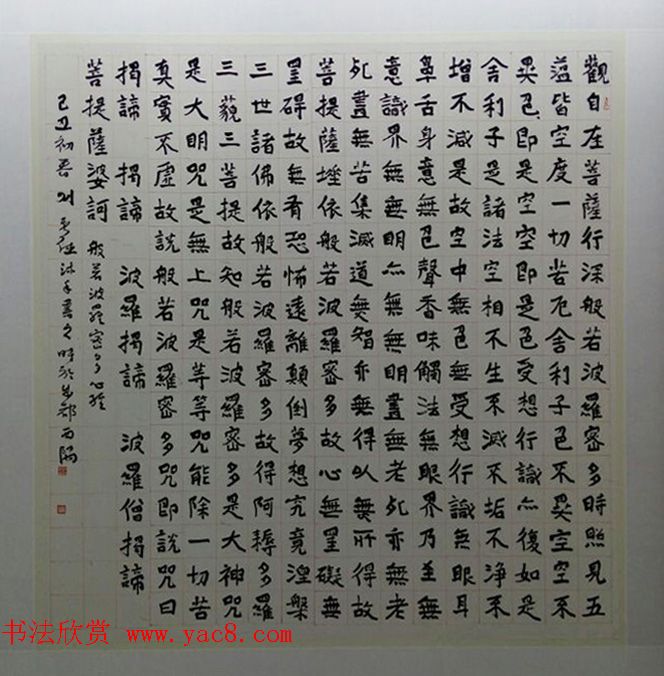 觀自在菩薩行深般若波羅密多時照見五
蕴皆空度一切苦厄舍利子色不異空空不
異色即是空空即是色受想行識亦復如是
舍利子是諸法空相不生不滅不垢不净不
增不減是故空中無色無受想行識無眼耳
鼻舌身意無色聲香味觸法無眼界乃至無
意識界無無明亦無無明盡無老死亦無老
死盡無苦集滅道無智亦無得以無所得故
菩提薩埵依般若波羅密多故心無罣礙無
罣碍故無有恐怖遠離顛倒夢想究竟涅槃
三世諸佛依般若波羅密多故得阿耨多羅
三藐三菩提故知般若波羅密多是大神咒
是大明咒是無上咒是等等咒能除一切苦
真實不虛故說般若波羅密多咒即說咒曰
揭諦 揭諦 波羅揭諦 波羅僧揭諦
菩提薩婆訶 般若波羅密多心經
己丑初春 書之時於成都西隅
书法欣赏 www.yac8.com